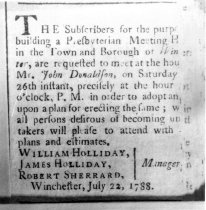 THE Subscribers for the purp
building a Presbyterian Meeting H
in the Town and Borough of Win
ter, are requested to meet at the hou
Mr. John Donaldson, on Saturday
26th instant, precisely at the hour
o'clock, P. M. in order to adopt an
upon a plan for erecting the same; w
all persons desirous of becoming un
takers will please to attend with
plans and estimates.
WILLIAM HOLLIDAY,
JAMES HOLLIDAY, Manager
ROBERT SHERRARD,
Winchester, July 22, 1788.